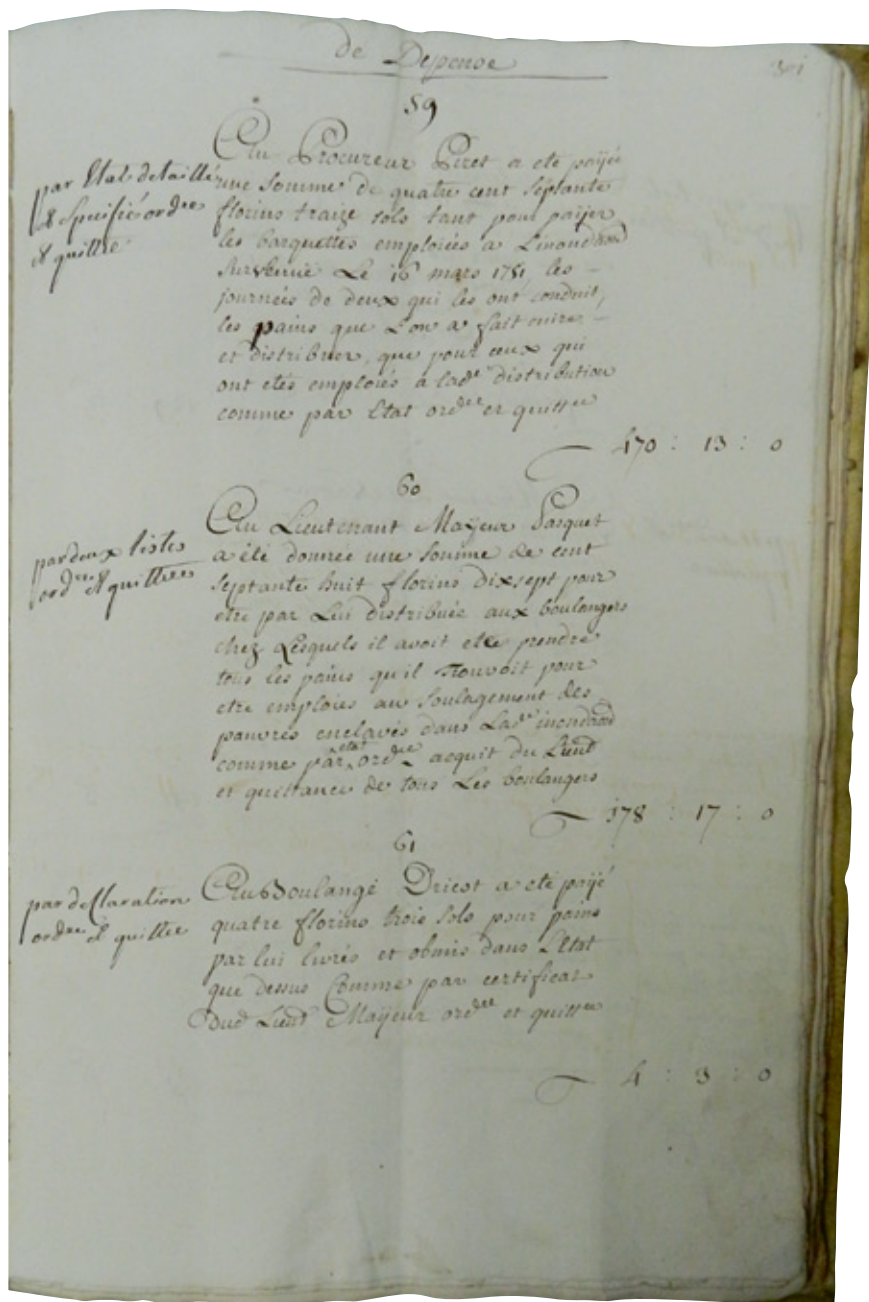 de Depense
301
59
par Etat detaillé
& Specifié ordce
& quittce
Au Procureur Piret a eté paÿé
une Somme de quatre cent Septante
florins traize sols tant pour paÿer
les barquettes emploiées a L'inondaon
Survenüe Le 16 mars 1751, les –
journées de deux qui les ont conduit,
les pains que L'on a fait cuire –
et distribuer, que pour ceux qui
ont etés emploiés a ladte distribution
comme par Etat ordce et quittce
470 : 13 : 0
60
par deux listes
ordces & quittces
Au Lieutenant Maÿeur Pasquet
a été donnée une Somme de cent
Septante huit florins dixsept pour
etre par Lui distribuée aux boulangers
chez Lesquels il avoit eté prendre
tous les pains qu'il Trouvoit pour
etre emploiés au Soulagement des
pauvres enclavés dans Ladte inondaon
comme par etat ordce acquit du Lieut
et quittance de tous Les boulangers
178 : 17 : 0
61
par declaration
ordce & quittce
Au Boulangé Dricot a eté paÿé
quatre florins trois sols pour pains
par lui livrés et obmis dans L'Etat
que dessus Comme par certificat
Dud Lieut Maÿeur ordce et quittce
4 : 3 : 0